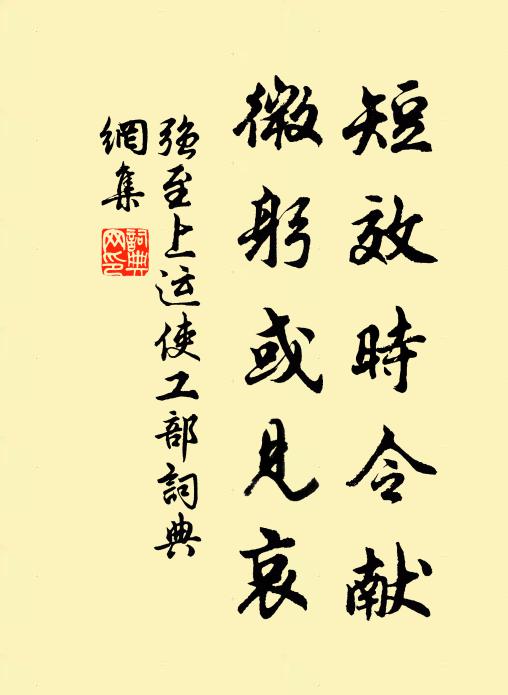 短效時令献
微躬或见哀
强至上运使工部詞典
網集
詞典
网印